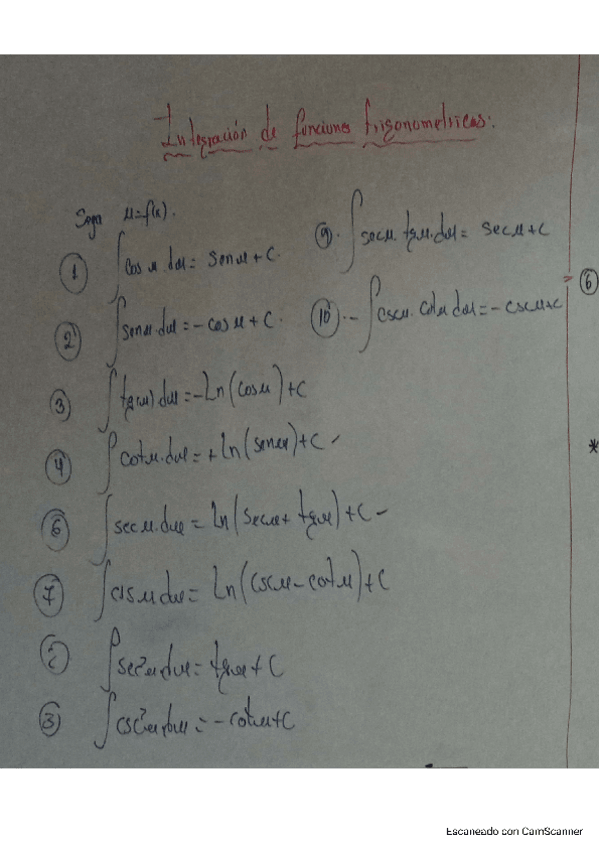 Integración de funciones trigonometricas:
Sea u=f(x).
① ∫cos u.du = senu + C.
② ∫senu.du = -cos u + C.
③ ∫tg(u) du = -Ln(cosu)+C
④ ∫cotu.du = + Ln(senu)+C
⑥ ∫secu.du = Ln(secu+ tgu)+C
⑦ ∫csc u du = Ln(cscu-cotu)+C
② ∫sec²u.du = tgu + C
③ ∫csc²u.du = -cotu+C
⑨. ∫secu. tgu.du = secu+C
⑩.- ∫cscu. cotu du = -cscu+C
⑥
*
Escaneado con CamScanner